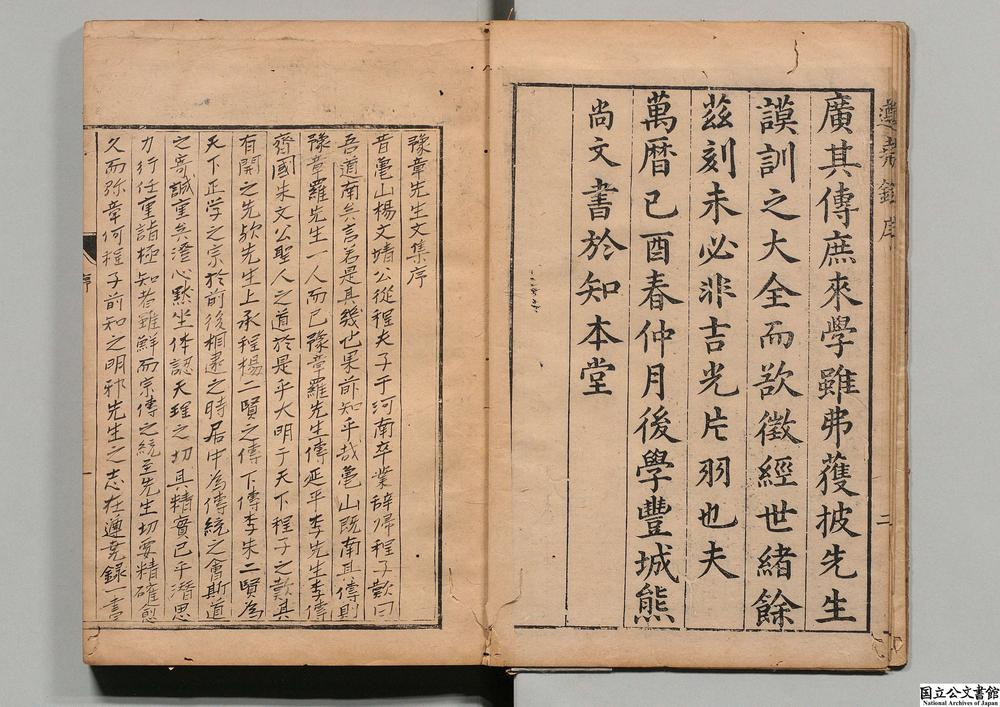 遵堯錄序
二
廣其傳庶來學雖弗獲披先生
謨訓之大全而欲徵經世緒餘
茲刻未必非吉光片羽也夫
萬曆己酉春仲月後學豐城熊
尚文書於知本堂
豫章先生文集序
昔龜山楊文靖公從程夫子于河南卒業辭歸程子歎曰
吾道南矣言若是其幾也果前知乎哉龜山既南其傳則
豫章羅先生一人而已豫章羅先生傳延平李先生李傳
齊國朱文公聖人之道於是乎大明于天下程子之歎其
有開之先欤先生上承程楊二賢之傳下傳李朱二賢為
天下正学之宗於前後相遝之時居中為傳統之會斯道
之寄誠重矣澄心默坐体認天理之切其精實已乎潛思
力行任重詣極知者雖鮮而宗傳之統至先生切要精確愈
久而弥章何程子前知之明邪先生之志在遵堯録一書
序
一
国立公文書館
National Archives of Japan